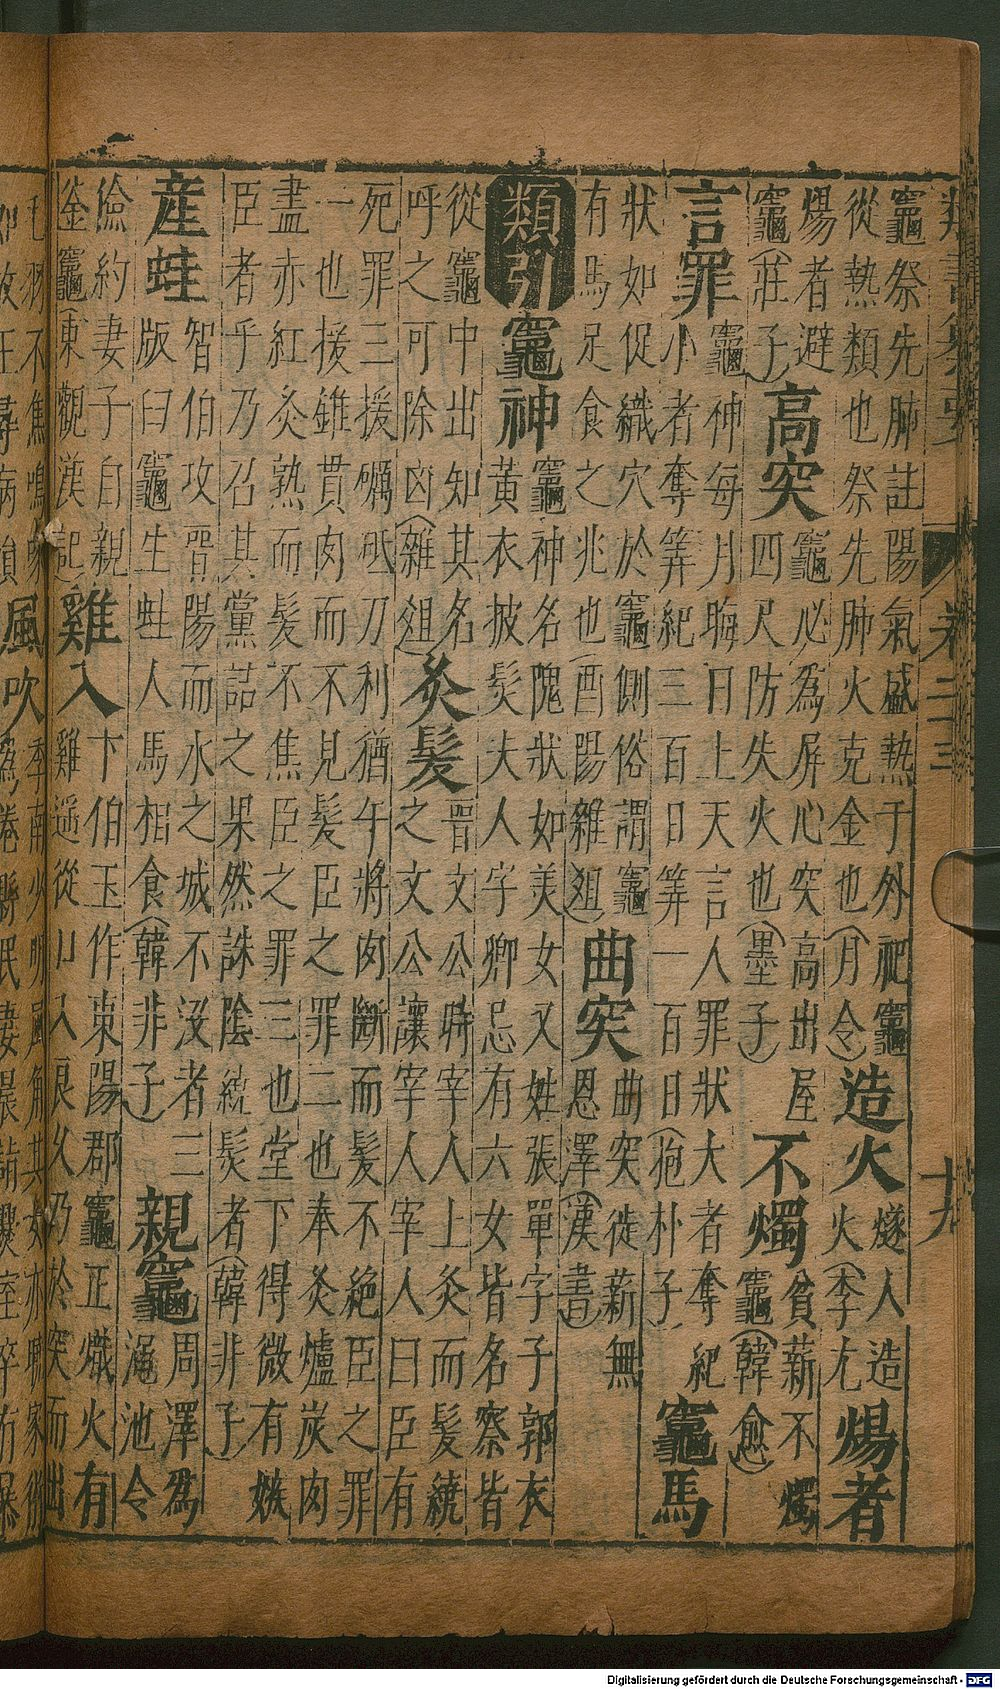 類書纂要　卷二十三　十九
竈祭先肺註陽氣盛熱于外祀竈
從熱類也祭先肺火克金也(月令)
造火
燧人造
火(李尤
煬者
煬者避
竈(莊子)
高突
竈必爲屏心突高出屋
四尺防失火也(墨子)
不燭
貧薪不燭
竈(韓愈)
言罪
竈神每月晦日上天言人罪狀大者奪紀
小者奪筭紀三百日筭一百日(抱朴子)
竈馬
狀如促織穴於竈側俗謂竈
有馬足食之兆也(酉陽雜爼)
曲突
曲突徙薪無
恩澤(漢書)
類引
竈神
竈神名隗狀如美女又姓張單字子郭衣
黃衣披髪夫人字卿忌有六女皆名察皆
從竈中出知其名
呼之可除凶(雜爼)
炙髪
晋文公時宰人上炙而髪繞
之文公讓宰人宰人曰臣有
死罪三援礪砥刀利猶午將肉斷而髪不絕臣之罪
一也援錐貫肉而不見髪臣之罪二也奉炙爐炭肉
盡赤紅炙熟而髪不焦臣之罪三也堂下得微有嫉
臣者乎乃召其黨詰之果然誅陰繞髪者(韓非子)
産蛙
智伯攻晋陽而水之城不没者三
版臼竈生蛙人馬相食(韓非子)
親竈
周澤爲
澠池令
儉約妻子自親
釡竈(東觀漢記)
雞入
卞伯玉作東陽郡竈正熾火有
雞遥從口入良久乃於突而出
毛羽不焦鳴
如故王尋病殞
風吹
季南少明風角其女亦曉家術
縣民妻晨詣爨室卒有暴
Digitalisierung gefördert durch die Deutsche Forschungsgemeinschaft - DFG